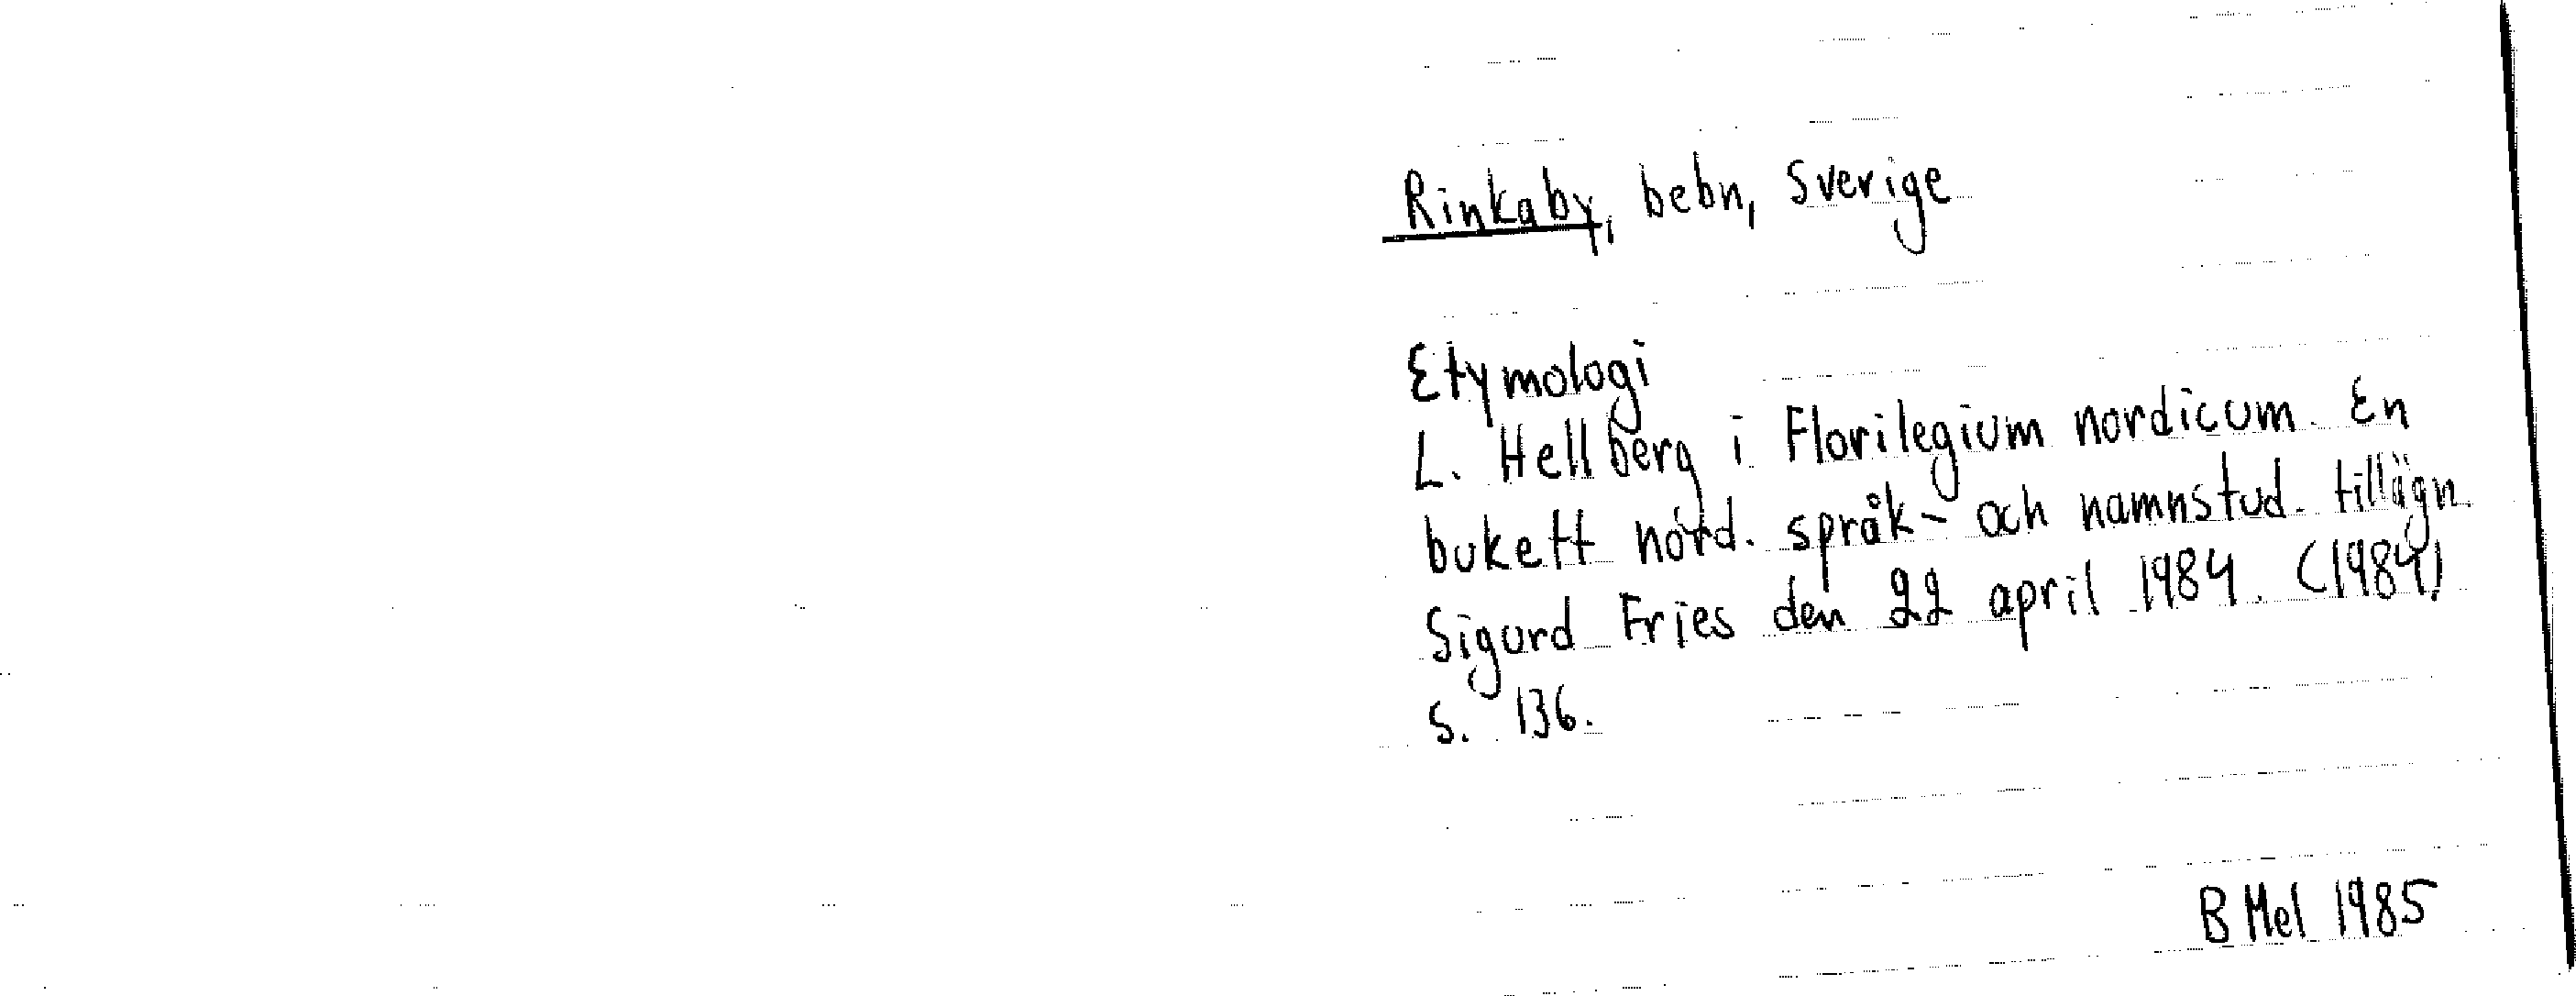 Rinkaby, bebn, Sverige
Etymologi
L. Hellberg i Florilegium nordicum. En
bukett nord. språk- och namnstud. tillägn.
Sigurd Fries den 22 april 1984. (1984)
s. 136.
B Mel 1985